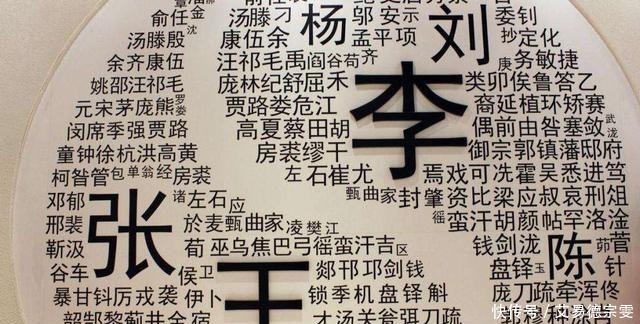 俞任金
汤滕殷
余齐康伍
姚邵汪祁毛
元宋茅庞熊
罗娄
闵席季强贾路
童钟徐杭洪高黄
柯昝管
包单翁经
房裘
邓郁
诸
左石
应
邢裴
於麦甄曲家
凌樊江
靳汲
荀巫乌焦巴弓徭蛮汗吉
区
谷车
侯
卫
暴甘钭厉戎袭
伊卜
张
王
汤滕
刁
康伍余
杨
邬安
示
孟平项
刘
委钊
抄
定化
汪祁毛禹
阎谷苟
齐
庚
务敏捷
庞林纪舒屈禾
李
类卯俟鲁答乙
贾路娄危江
裔延植环矫赛
高夏蔡田胡
偶前由昝塞敛
武
泷
房裘缪干
御宗郭镇藩邸府
左
石崔尤
焉戏可冼霍吴悉进笃
甄曲家
封肇资比梁应叔哀刑俎
徭
蛮汗胡颜帖罕洛淦
钱剑泷
陈
茆
菅
郯邗邛剑钱
盘铎
玉
针
锁季机盘铎斛
庞刀疏牵浑佟
才汤关瓮弭刀疏
快传号/艾易德宗雯